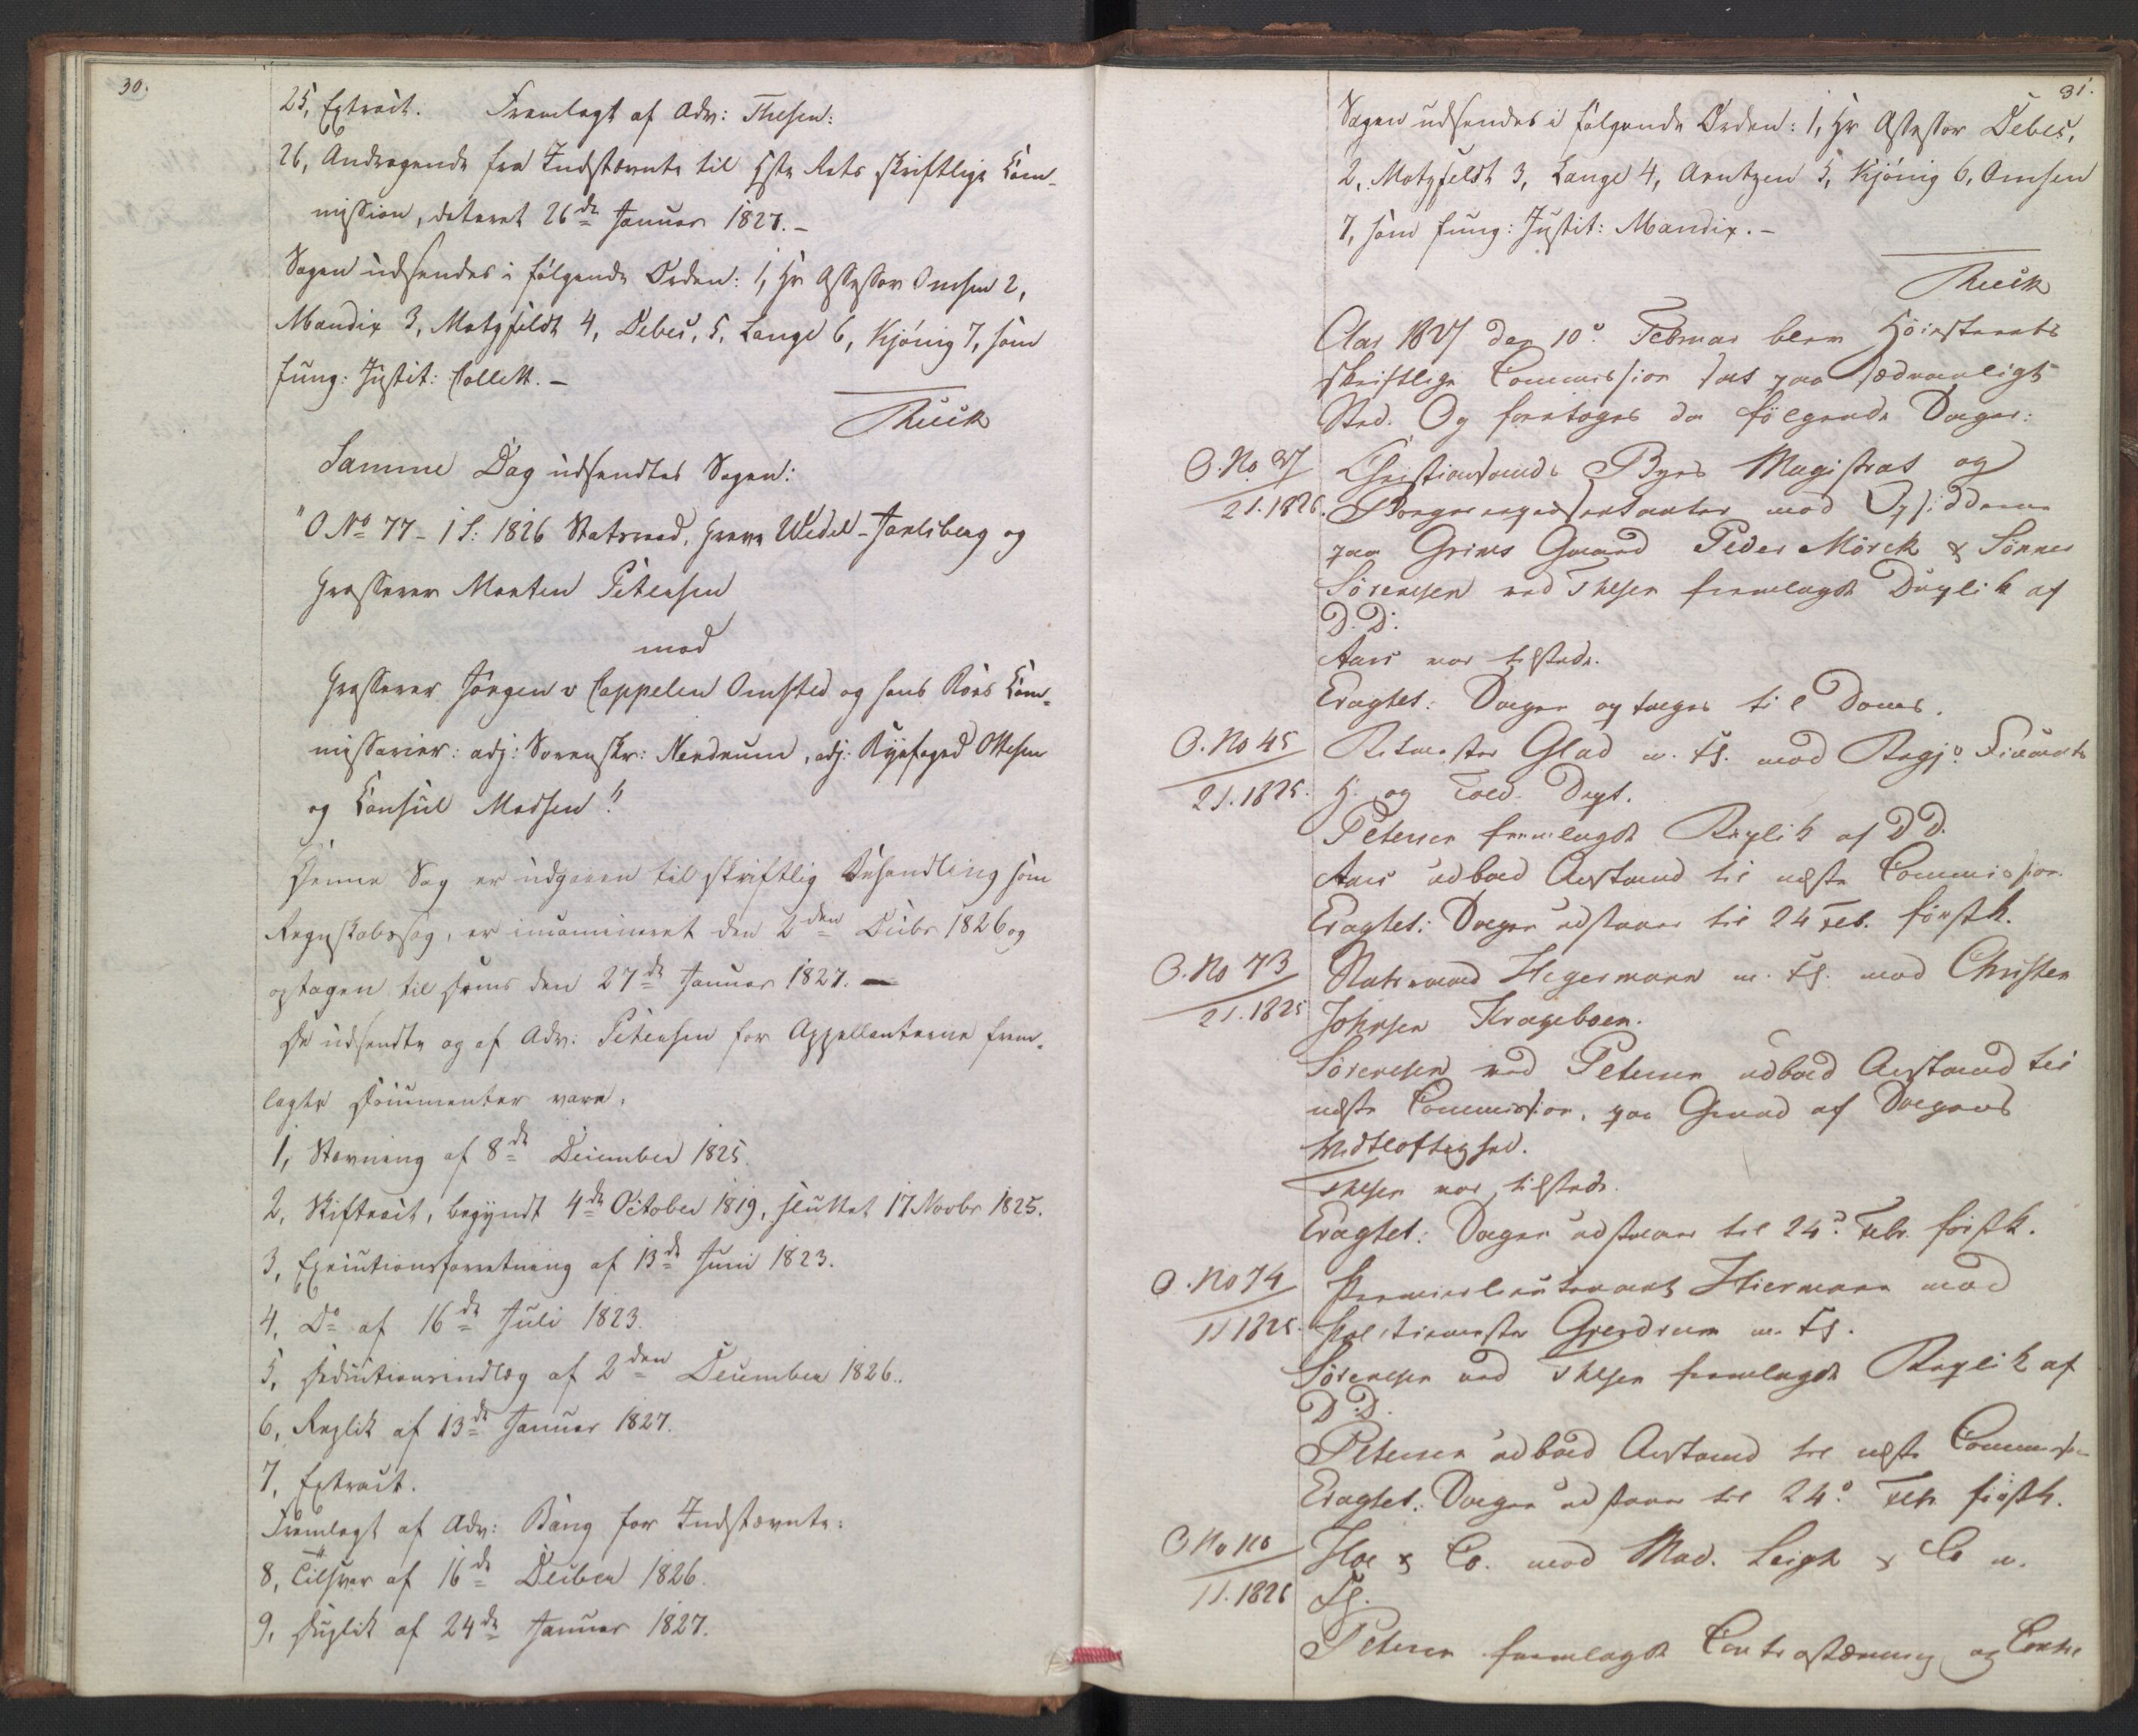 30.
25, Extract. Fremlagt af Adv: Thesen:
26, Andragende fra Indstævnte til Hste Rets skriftlige Com-
mission, dateret 26de Januar 1827.–
Sagen udsendes i følgende Orden: 1, Hr Assessor Omsen 2,
Mandix 3, Motzfeldt 4, Debes, 5, Lange 6, Kjönig 7, som
fung: Justit: Collett.–
Rieck
Samme Dag udsendtes Sagen:
"O No 77 – 1 S: 1826 Statsraad, Greve Wedel-Jarlsberg og
Grosserer Morten Petersen
mod
Grosserer Jörgen v Cappelen Omsted og hans Boes Com-
missarier: adj: Sorenskr: Nerdrum, adj: Byefoged Ottesen
og Consul Madsen"
Denne Sag er udgaaen til skriftlig Behandling som
Regnskabssag, er incamineret den 2den Decbr 1826 og
optagen til Doms den 27de Januar 1827. —
De udsendte og af Adv: Petersen for Appellanterne frem-
lagte Documenter vare.
1, Stævning af 8de December 1825.
2, Skifteact, begyndt 4de October 1819, sluttet 17 Novbr 1825.
3, Executionsforretning af 13de Juni 1823.
4, Do af 16de Juli 1823.
5, Deductionsindlæg af 2den December 1826.
6, Replik af 13de Januar 1827.
7, Extract.
Fremlagt af Adv: Bang for Indstævnte:
8, Tilsvar af 16de Decbr 1826.
9, Duplik af 24de Januar 1827.
31.
Sagen udsendes i følgende Orden: 1, Hr Assessor Debes,
2, Motzfeldt 3, Lange 4, Arntzen 5, Kjönig 6, Omsen
7, som fung: Justit: Mandix.–
Rieck
Aar 1827 den 10o Februar blev Høiesterets
skriftlige Commission sat paa sædvanligt
Sted. Og foretoges da følgende Sager:
O. No 37
2 S. 1826.
Christiansands Byes Magistrat og
Borgerrepræsentanter mod Opsidderne
paa Grims Gaard Peder Mörck & Sönner
Sörensen ved Thesen fremlagde Duplik af
D.D.
Aars var tilstede.
Eragtet: Sagen optages til Doms.
O. No 45
2 S. 1825.
Ritmester Glad m. fl. mod Regjs Finants
H. og Told Dept.
Petersen fremlagde Replik af DD.
Aars udbad Anstand til næste Commission.
Eragtet: Sagen udstaaer til 24 Feb. førstk.
O. No 73
2 S. 1825
Statsraad Hegermann m. fl. mod Christen
Johnsen Krageboen.
Sörensen ved Petersen udbad Anstand til
næste Commission, paa Grund af Sagens
Vidtløftighed.
Thesen var tilstede.
Eragtet: Sagen udstaaer til 24o Febr. førstk.
O. No 74
1 S 1825.
Premierlieutenant Hiermann mod
Politiemester Gjerdrum m. fl.
Sörensen ved Thesen fremlagde Replik af
D.D.
Petersen udbad Anstand til næste Commission
Eragtet: Sagen udstaaer til 24o Feb. førstk.
O No 110
1 S. 1826
Hoe & Co. mod Mad. Leigh & Co m.
fl.
Petersen fremlagde Contrastævning og Contra